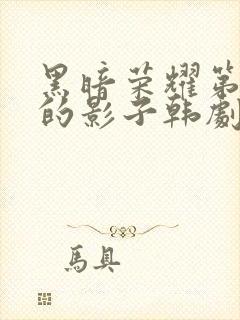 黑暗荣耀第
的影子韩劇
馬具